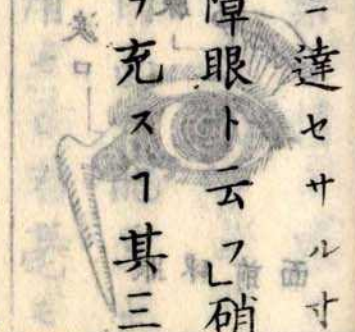 ー達セサル寸
障眼ト云フ」硝
ヲ充スヿ其三